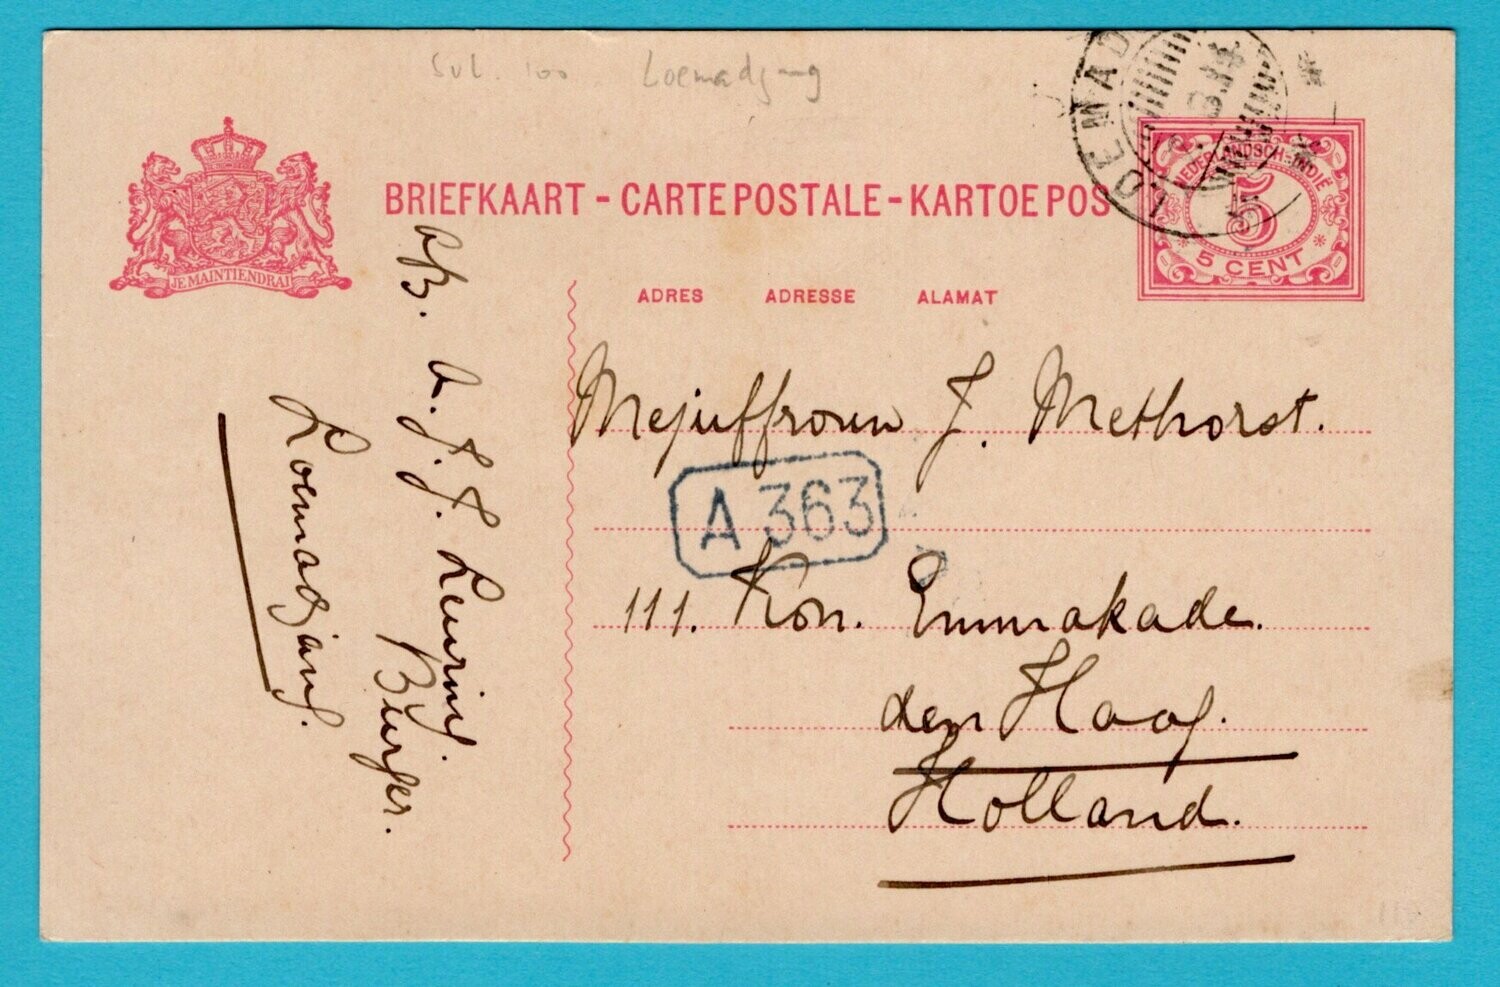 Loemadjang
LOEMAD
JE MAINTIENDRAI
BRIEFKAART - CARTE POSTALE - KARTOE POS
NEDERLANDSCH-INDIË
5
5 CENT
ADRES ADRESSE ALAMAT
Mejuffrouw J. Methorst.
A 363
111. Kon. Emmakade.
den Haag.
Holland.
Afz. A. J. J. Leuring
Burger.
Loemadjang.